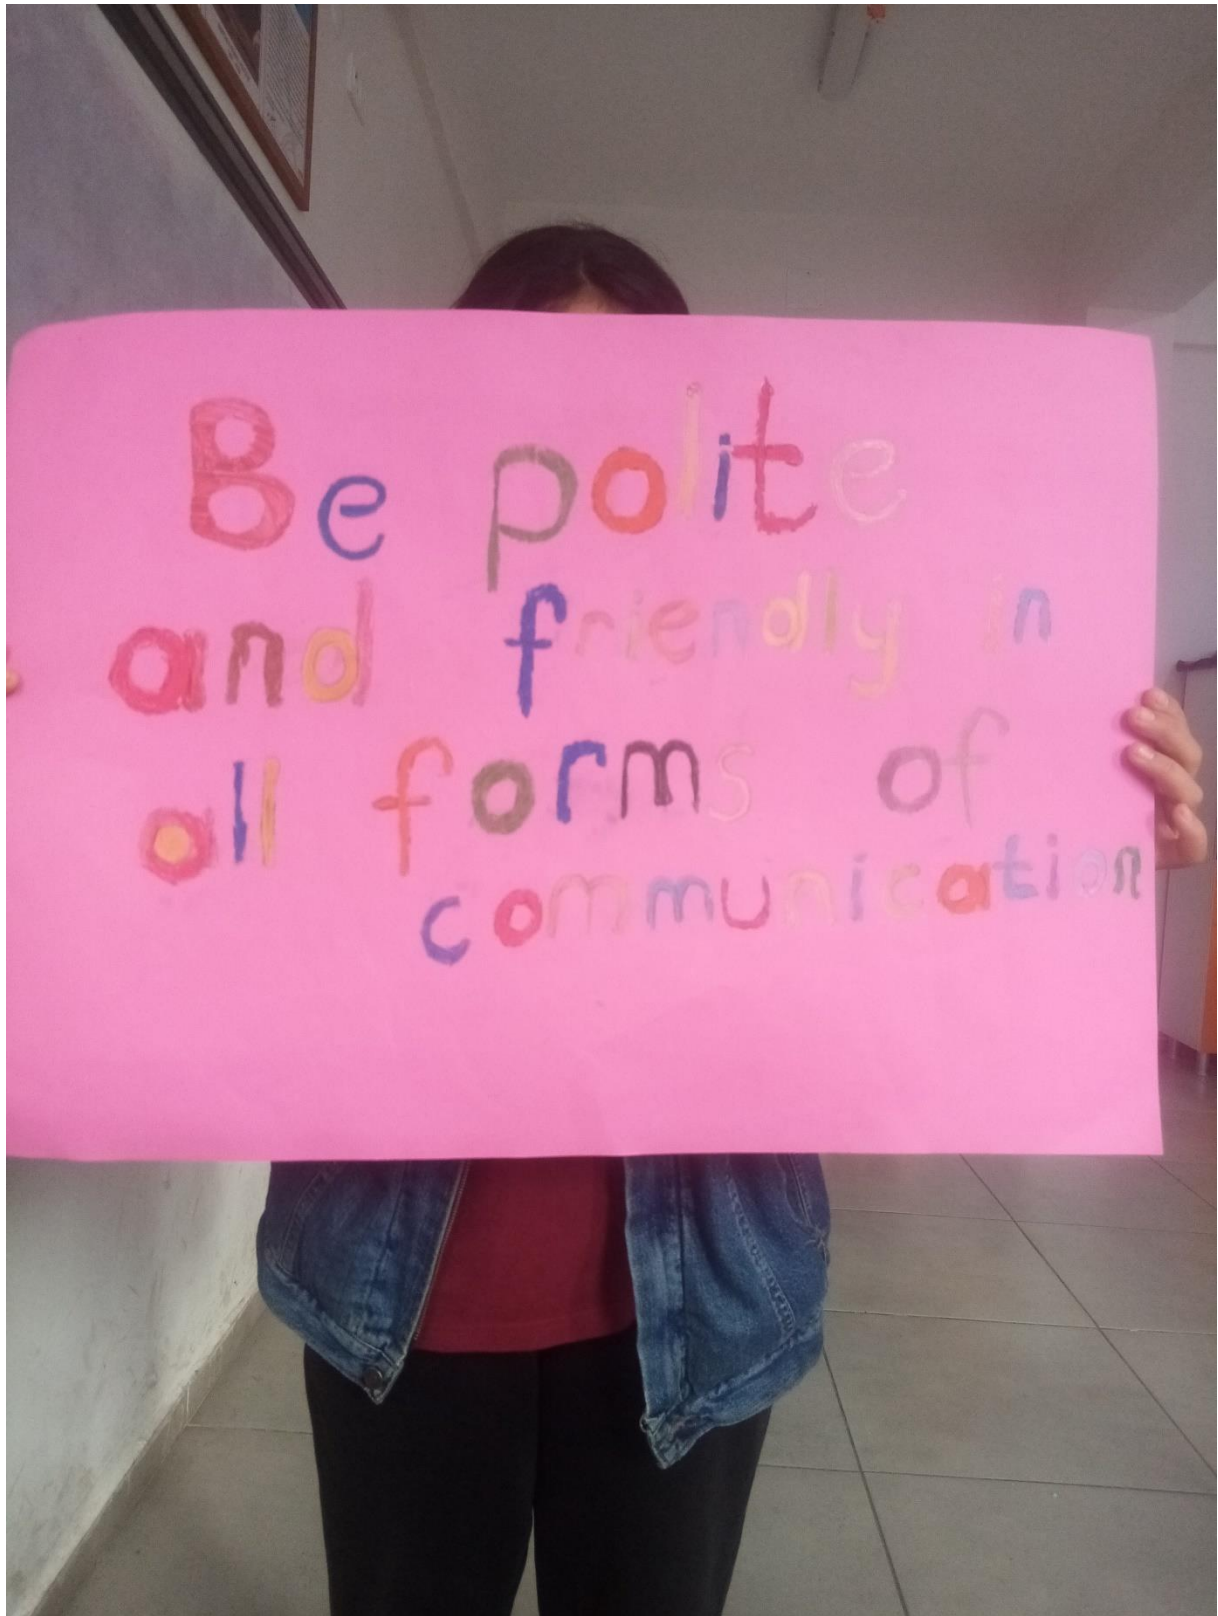 Be polite
and friendly in
all forms of
communication